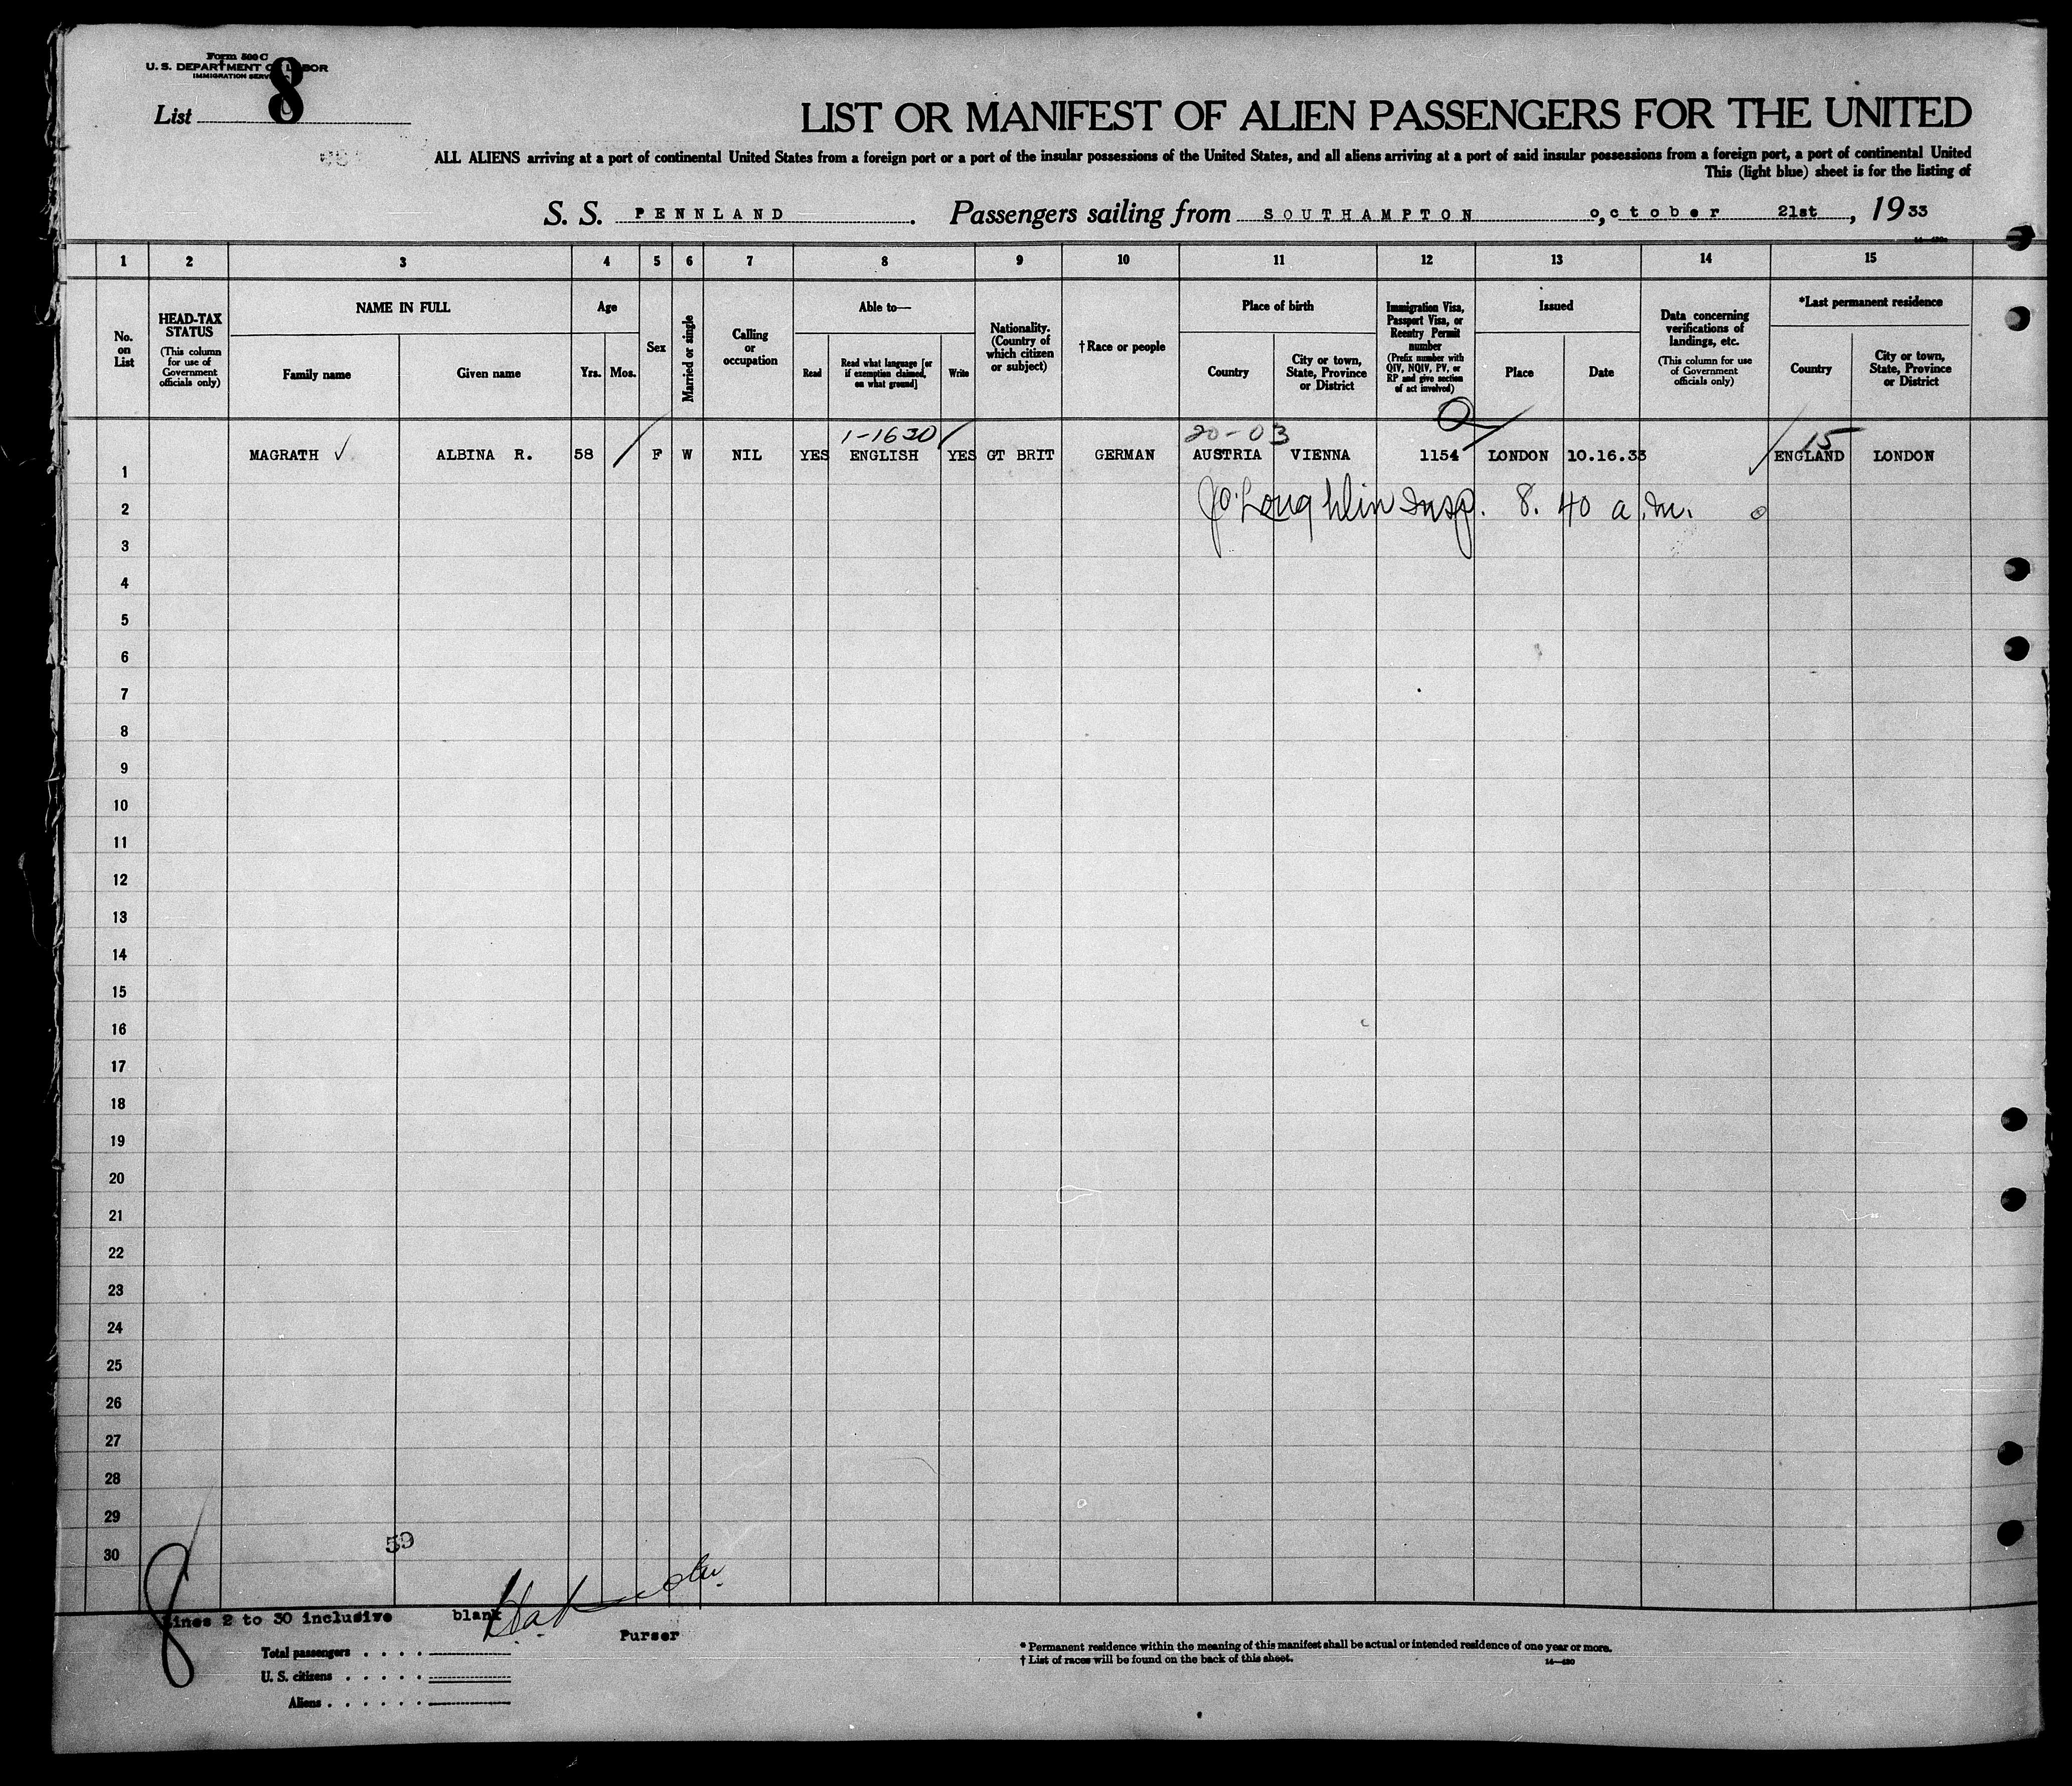 Form 500 C
U. S. DEPARTMENT OF LABOR
IMMIGRATION SERVICE
List 8
LIST OR MANIFEST OF ALIEN PASSENGERS FOR THE UNITED
ALL ALIENS arriving at a port of continental United States from a foreign port or a port of the insular possessions of the United States, and all aliens arriving at a port of said insular possessions from a foreign port, a port of continental United
This (light blue) sheet is for the listing of
S. S. PENNLAND. Passengers sailing from SOUTHAMPTON, october 21st, 19 33
1 2 3 4 5 6 7 8 9 10 11 12 13 14 15
No. on List
HEAD-TAX STATUS (This column for use of Government officials only)
NAME IN FULL
Family name Given name
Age
Yrs. Mos.
Sex
Married or single
Calling or occupation
Able to—
Read Read what language [or if exemption claimed, on what ground] Write
Nationality. (Country of which citizen or subject)
†Race or people
Place of birth
Country City or town, State, Province or District
Immigration Visa, Passport Visa, or Reentry Permit number (Prefix number with QIV, NQIV, PV, or RP and give section of act involved)
Issued
Place Date
Data concerning verifications of landings, etc. (This column for use of Government officials only)
*Last permanent residence
Country City or town, State, Province or District
1-1630 20-03 15
1 MAGRATH ✓ ALBINA R. 58 F W NIL YES ENGLISH YES GT BRIT GERMAN AUSTRIA VIENNA 1154 LONDON 10.16.33 ENGLAND LONDON
2 JO'Loughlin Insp. 8.40 a.m.
3
4
5
6
7
8
9
10
11
12
13
14
15
16
17
18
19
20
21
22
23
24
25
26
27
28
29
59
30
8
Lines 2 to 30 inclusive blank
Purser
Total passengers . . . .
U. S. citizens . . . . .
Aliens . . . . . .
* Permanent residence within the meaning of this manifest shall be actual or intended residence of one year or more.
† List of races will be found on the back of this sheet.
14—430